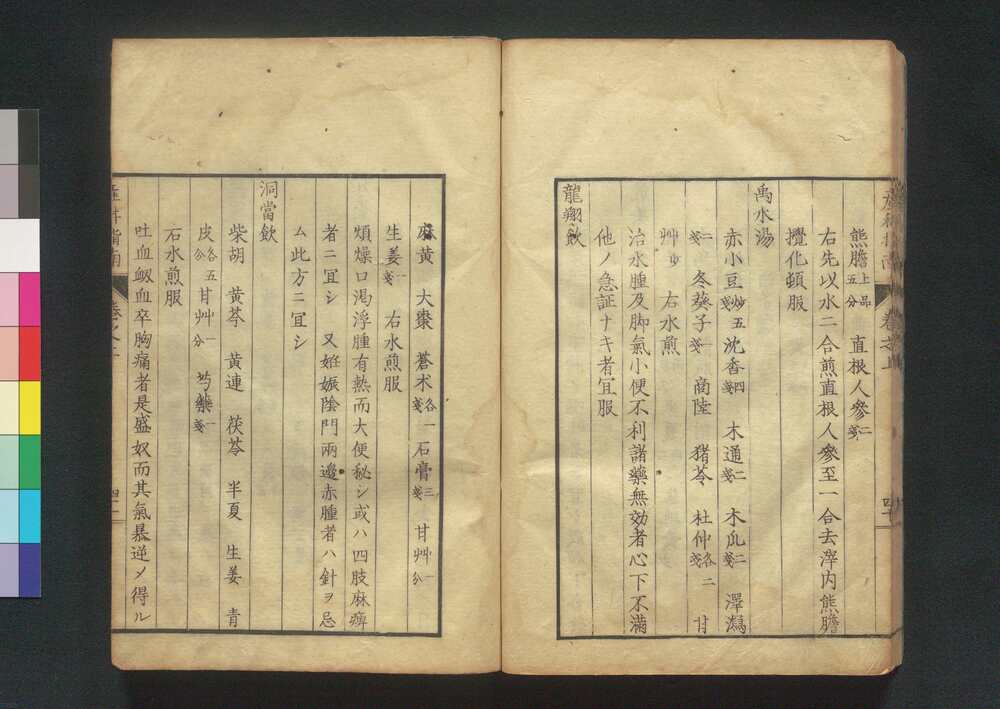 熊膽上品五分 直根人參二戔
右先以水二合煎直根人參至一合去滓内熊膽
攪化頓服
禹水湯
赤小豆炒五戔 沈香四戔 木通二戔 木瓜二戔 澤瀉
二戔 冬葵子一戔 商陸 猪苓 杜仲各二戔 甘
艸少 右水煎
治水腫及脚氣小便不利諸藥無効者心下不滿
他ノ急証ナキ者冝服
龍翔飲
麻黄 大棗 蒼朮各一戔 石膏三戔 甘艸一分
生姜一戔 右水煎服
煩燥口渇浮腫有熱而大便秘シ或ハ四肢麻痺
者ニ冝シ 又妊娠陰門兩邊赤腫者ハ針ヲ忌
ム此方ニ冝シ
洞當飲
柴胡 黄芩 黄連 茯苓 半夏 生姜 青
皮各五分 甘艸一分 芍藥一戔
右水煎服
吐血衂血卒胸痛者是盛奴而其氣暴逆メ得ル